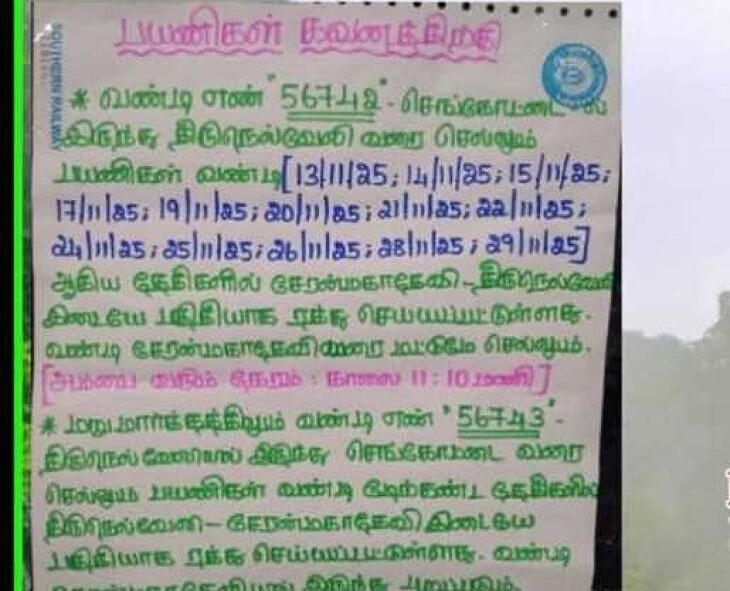 பயணிகள் கவனத்திற்கு
SOUTHERN RAILWAY
* வண்டி எண் "56742" - செங்கோட்டை - ல்
இருந்து திருநெல்வேலி வரை செல்லும்
பயணிகள் வண்டி [13/11/25; 14/11/25; 15/11/25;
17/11/25; 19/11/25; 20/11/25; 21/11/25; 22/11/25;
24/11/25; 25/11/25; 26/11/25; 28/11/25; 29/11/25]
ஆகிய தேதிகளில் சேரன்மகாதேவி - திருநெல்வேலி
இடையே பகுதியாக ரத்து செய்யப்பட்டுள்ளது.
வண்டி சேரன்மகாதேவி வரை மட்டுமே செல்லும்.
[அம்பை வரும் நேரம் : காலை 11:10 மணி]
* மறுமார்க்கத்திலும் வண்டி எண் "56743" -
திருநெல்வேலியில் இருந்து செங்கோட்டை வரை
செல்லும் பயணிகள் வண்டி மேற்கண்ட தேதிகளில்
திருநெல்வேலி - சேரன்மகாதேவி இடையே
பகுதியாக ரத்து செய்யப்பட்டுள்ளது. வண்டி
சேரன்மகாதேவியில் இருந்து புறப்படும்